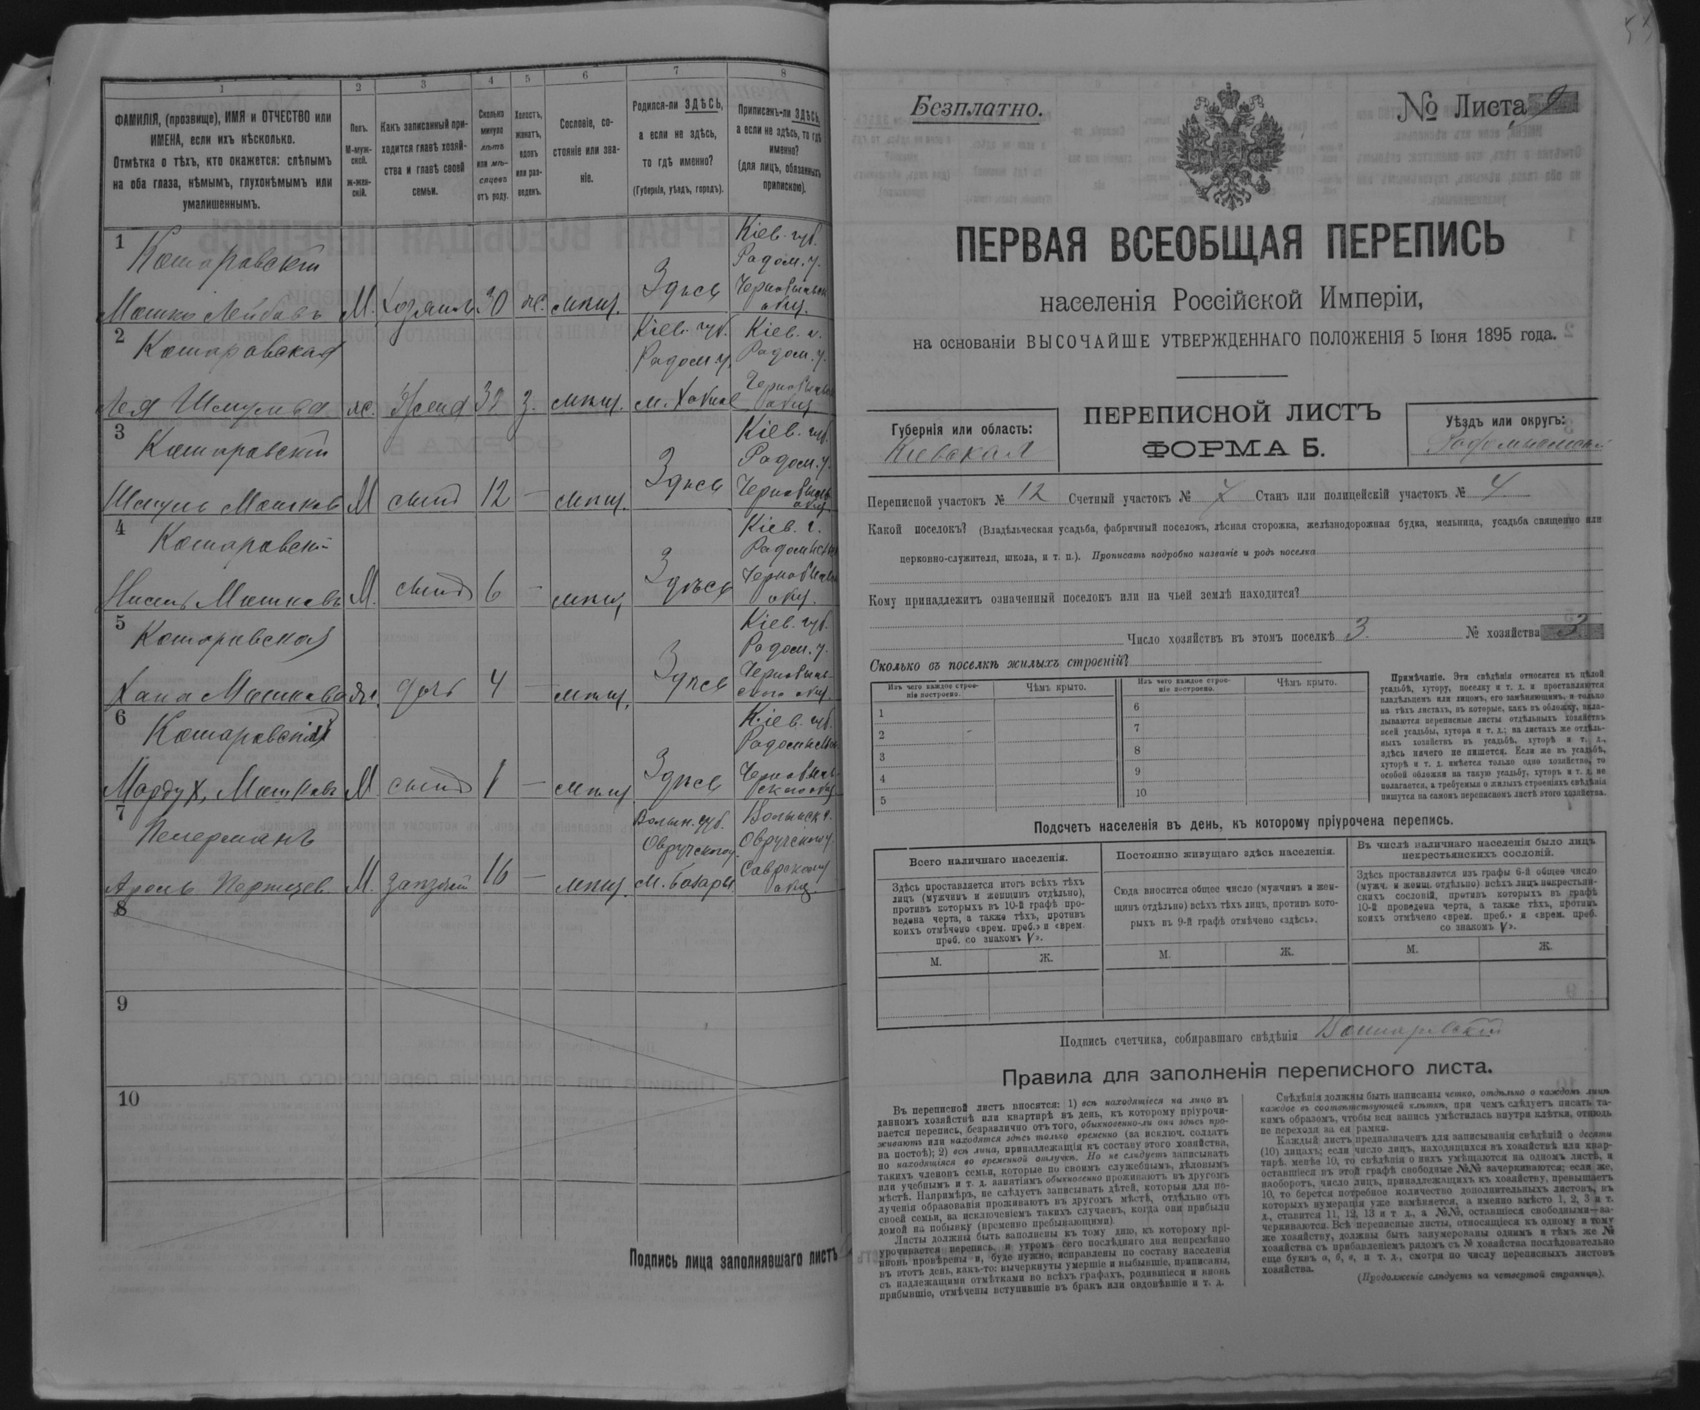 1 2 3 4 5 6 7 8
ФАМИЛІЯ, (прозвище), ИМЯ и ОТЧЕСТВО или
ИМЕНА, если ихъ нѣсколько.
Отмѣтка о тѣхъ, кто окажется: слѣпымъ
на оба глаза, нѣмымъ, глухонѣмымъ или
умалишеннымъ.
Полъ.
М-муж-
ской.
ж-жен-
скій.
Какъ записанный при-
ходится главѣ хозяй-
ства и главѣ своей
семьи.
Сколько
минуло
лѣтъ
или мѣ-
сяцевъ
отъ роду.
Холостъ,
женатъ,
вдовъ
или раз-
веденъ.
Сословіе, со-
стояніе или зва-
ніе.
Родился-ли ЗДѢСЬ,
а если не здѣсь,
то гдѣ именно?
(Губернія, уѣздъ, городъ).
Приписанъ-ли ЗДѢСЬ,
а если не здѣсь, то гдѣ
именно?
(для лицъ, обязанныхъ
припискою).
1
Комаровскій Кіев. губ.
Радом. у.
Мошко Лейбовъ М. хозяинъ 30 ж. мѣщ. Здѣсь
2
Комаровская Кіев. губ. Кіев. г.
Радом. у. Радом. у.
Лея Шмулева ж. Жена 32 з. мѣщ.
3
Комаровскій Кіев. губ.
Радом. у.
Шмуль Мошковъ М сынъ 12 — мѣщ. Здѣсь
4
Комаровскій Кіев. г.
Нисель Мошковъ М. сынъ 6 — мѣщ. Здѣсь
5
Комаровская Кіев. губ.
Радом. у.
Хана Мошкова ж. дочь 4 — мѣщ. Здѣсь
6
Комаровскій Кіев. губ.
Мордух Мошковъ М сынъ 1 — мѣщ. Здѣсь
7
Волын. губ.
М. 16 — мѣщ.
8
9
10
Подпись лица заполнявшаго листъ
Безплатно.
№ Листа
ПЕРВАЯ ВСЕОБЩАЯ ПЕРЕПИСЬ
населенія Россійской Имперіи,
на основаніи ВЫСОЧАЙШЕ УТВЕРЖДЕННАГО ПОЛОЖЕНІЯ 5 Іюня 1895 года.
Губернія или область:
Кіевская
ПЕРЕПИСНОЙ ЛИСТЪ
ФОРМА Б.
Уѣздъ или округъ:
Радомысльскій
Переписной участокъ № 12 Счетный участокъ № 7 Станъ или полицейскій участокъ № 4
Какой поселокъ? (Владѣльческая усадьба, фабричный поселокъ, лѣсная сторожка, желѣзнодорожная будка, мельница, усадьба священно или
церковно-служителя, школа, и т. п.). Прописать подробно названіе и родъ поселка
Кому принадлежитъ означенный поселокъ или на чьей землѣ находится?
Число хозяйствъ въ этомъ поселкѣ 3. № хозяйства 3.
Сколько въ поселкѣ жилыхъ строеній?
Изъ чего каждое строе-
ніе построено. Чѣмъ крыто. Изъ чего каждое строе-
ніе построено. Чѣмъ крыто.
1 6
2 7
3 8
4 9
5 10
Примѣчаніе. Эти свѣдѣнія относятся къ цѣлой
усадьбѣ, хутору, поселку и т. д. и проставляются
владѣльцемъ или лицомъ, его замѣняющимъ, и только
на тѣхъ листахъ, въ которые, какъ въ обложку, вкла-
дываются переписные листы отдѣльныхъ хозяйствъ
всей усадьбы, хутора и т. д.; на листахъ же отдѣль-
ныхъ хозяйствъ въ усадьбѣ, хуторѣ и т. д.,
здѣсь ничего не пишется. Если же въ усадьбѣ,
хуторѣ и т. д. имѣется только одно хозяйство, то
особой обложки на такую усадьбу, хуторъ и т. д. не
полагается, а требуемыя о жилыхъ строеніяхъ свѣдѣнія
пишутся на самомъ переписномъ листѣ этого хозяйства.
Подсчетъ населенія въ день, къ которому пріурочена перепись.
Всего наличнаго населенія.
Здѣсь проставляется итогъ всѣхъ тѣхъ
лицъ (мужчинъ и женщинъ отдѣльно),
противъ которыхъ въ 10-й графѣ про-
ведена черта, а также тѣхъ, противъ
коихъ отмѣчено «врем. преб.» и «врем.
преб. со знакомъ V».
М. Ж.
Постоянно живущаго здѣсь населенія.
Сюда вносится общее число (мужчинъ и жен-
щинъ отдѣльно) всѣхъ тѣхъ лицъ, противъ кото-
рыхъ въ 9-й графѣ отмѣчено «здѣсь».
М. Ж.
Въ числѣ наличнаго населенія было лицъ
некрестьянскихъ сословій.
Здѣсь проставляется изъ графы 6-й общее число
(мужч. и женщ. отдѣльно) всѣхъ лицъ некрестьян-
скихъ сословій, противъ которыхъ въ графѣ
10-й проведена черта, а также тѣхъ, противъ
коихъ отмѣчено «врем. преб.» и «врем. преб.
со знакомъ V».
М. Ж.
Подпись счетчика, собиравшаго свѣдѣнія
Правила для заполненія переписного листа.
Въ переписной листъ вносятся: 1) всѣ находящіеся на лицо въ
данномъ хозяйствѣ или квартирѣ въ день, къ которому пріурочи-
вается перепись, безразлично отъ того, обыкновенно-ли они здѣсь про-
живаютъ или находятся здѣсь только временно (за исключ. солдатъ
на постоѣ); 2) всѣ лица, принадлежащія къ составу этого хозяйства,
но находящіяся во временной отлучкѣ. Но не слѣдуетъ записывать
такихъ членовъ семьи, которые по своимъ служебнымъ, дѣловымъ
или учебнымъ и т. д. занятіямъ обыкновенно проживаютъ въ другомъ
мѣстѣ. Напримѣръ, не слѣдуетъ записывать дѣтей, которыя для по-
лученія образованія проживаютъ въ другомъ мѣстѣ, отдѣльно отъ
своей семьи, за исключеніемъ такихъ случаевъ, когда они прибыли
домой на побывку (временно пребывающими).
Листы должны быть наполнены къ тому дню, къ которому прі-
урочивается перепись, и утромъ сего послѣдняго дня непремѣнно
вновь провѣрены и, буде нужно, исправлены по составу населенія
въ этотъ день, какъ-то: вычеркнуты умершіе и выбывшіе, приписаны,
съ надлежащими отмѣтками во всѣхъ графахъ, родившіеся и вновь
прибывшіе, отмѣчены вступившіе въ бракъ или овдовѣвшіе и т. д.
Свѣдѣнія должны быть написаны четко, отдѣльно о каждомъ лицѣ
каждое въ соотвѣтствующей клѣткѣ, при чемъ слѣдуетъ писать та-
кимъ образомъ, чтобы вся запись умѣстилась внутри клѣтки, отнюдь
не переходя за ея рамки.
Каждый листъ предназначенъ для записыванія свѣдѣній о десяти
(10) лицахъ; если число лицъ, находящихся въ хозяйствѣ или квар-
тирѣ, менѣе 10, то свѣдѣнія о нихъ умѣщаются на одномъ листѣ, а
оставшіеся въ этой графѣ свободные №№ зачеркиваются; если же,
наоборотъ, число лицъ, принадлежащихъ къ хозяйству, превышаетъ
10, то берется потребное количество дополнительныхъ листовъ, въ
которыхъ нумерація уже намѣняется, а именно вмѣсто 1, 2, 3 и т.
д., ставится 11, 12, 13 и т. д., а №№, оставшіеся свободными—за-
черкиваются. Всѣ переписные листы, относящіеся къ одному и тому
же хозяйству, должны быть занумерованы однимъ и тѣмъ же №
хозяйства съ прибавленіемъ рядомъ съ № хозяйства послѣдовательно
еще буквъ а, б, в, и т. д., смотря по числу переписныхъ листовъ
хозяйства.
(Продолженіе слѣдуетъ на четвертой страницѣ).